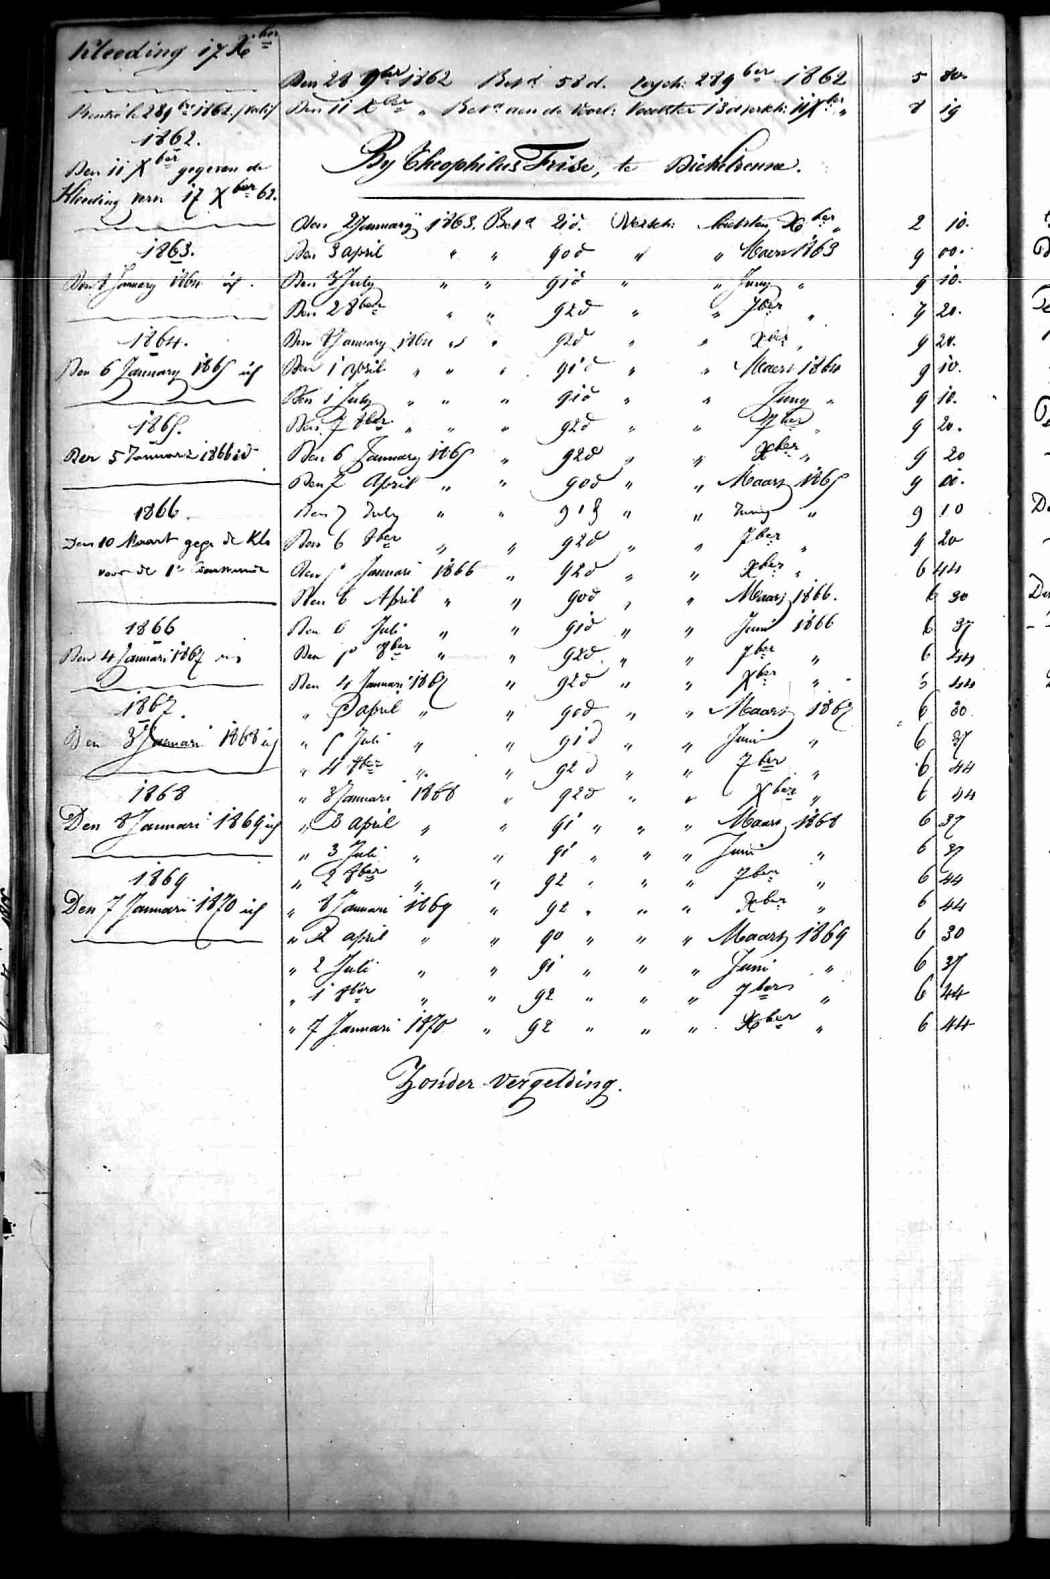 Kleeding 17 Xber
Den 28 9ber 1862 Betd 58 d. 289ber 1862 5 80
289bre 1862
Den 11 Xber " Betd aen de Voed: 13 d 11 Xber " 8 19
1862.
Den 11 Xber gegeven de
Kleeding vern 17 Xber 62.
By Theophilus Frise, te Dickelvenne.
Den 2 January 1863. Betd 21 d. Versch: Xber " 2 10.
1863.
Den 3 april " " 90 d " " Maert 1863 9 00.
Den 8 January 1864 id.
Den 3 July " " 91 d " " Juny " 9 10.
Den 2 8ber " " 92 d " " 7ber " 9 20.
1864.
Den 8 January 1864 " 92 d " " Xber " 9 20.
Den 6 January 1865 id
Den 1 april " " " 91 d " " Maert 1864 9 10.
Den 1 July " " " 91 d " " Juny " 9 10.
1865.
Den 7 8ber " " " 92 d " " 7ber " 9 20.
Den 5 Januari 1866 id
Den 6 January 1865 " 92 d " " Xber " 9 20
Den 7 April " " 90 d " " Maart 1865 9 00.
1866.
Den 7 July " " 91 d " " Juny " 9 10
Den 10 Maart gege de Kls
Den 6 8ber " " 92 d " " 7ber " 9 20
voor de 1e
Den 5 Januari 1866 " 92 d " " Xber " 6 44
Den 6 April " " 90 d " " Maart 1866. 6 30
1866
Den 6 Juli " " 91 d " " Juni 1866 6 37
Den 4 Januari 1867
Den 5 8ber " " 92 d. " " 7ber " 6 44
Den 4 Januari 1867 " 92 d " " Xber " 6 44
1867.
" 5 april " " 90 d " " Maart 1867 6 30
Den 8 Januari 1868 id
" 5 Juli " " 91 d " " Juni " 6 37
" 4 8ber " " 92 d " " 7ber " 6 44
1868
" 8 Januari 1868 " 92 d " " Xber " 6 44
Den 8 Januari 1869 id
" 3 april " " 91 " " " Maart 1868 6 37
" 3 Juli " " 91 " " " Juni " 6 37
1869
" 2 8ber " " 92 " " " 7ber " 6 44
Den 7 Januari 1870 id
" 8 Januari 1869 " 92 " " " Xber " 6 44
" 2 april " " 90 " " " Maart 1869 6 30
" 2 Juli " " 91 " " " Juni " 6 37
" 1 8ber " " 92 " " " 7ber " 6 44
" 7 Januari 1870 " 92 " " " Xber " 6 44
Zonder vergelding.